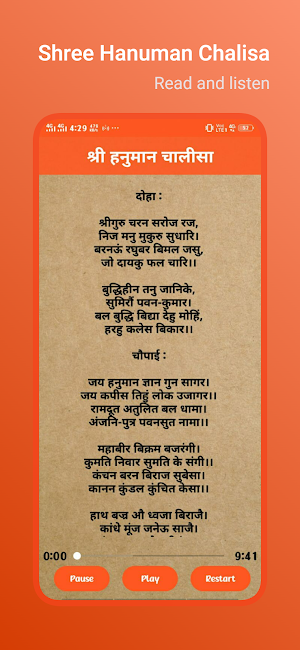 Shree Hanuman Chalisa
Read and listen
4:29
श्री हनुमान चालीसा
दोहा :
श्रीगुरु चरन सरोज रज,
निज मनु मुकुरु सुधारि।
बरनऊं रघुबर बिमल जसु,
जो दायकु फल चारि।।
बुद्धिहीन तनु जानिके,
सुमिरौं पवन-कुमार।
बल बुद्धि बिद्या देहु मोहिं,
हरहु कलेस बिकार।।
चौपाई :
जय हनुमान ज्ञान गुन सागर।
जय कपीस तिहुं लोक उजागर।।
रामदूत अतुलित बल धामा।
अंजनि-पुत्र पवनसुत नामा।।
महाबीर बिक्रम बजरंगी।
कुमति निवार सुमति के संगी।।
कंचन बरन बिराज सुबेसा।
कानन कुंडल कुंचित केसा।।
हाथ बज्र औ ध्वजा बिराजै।
कांधे मूंज जनेऊ साजै।
0:00 9:41
Pause Play Restart